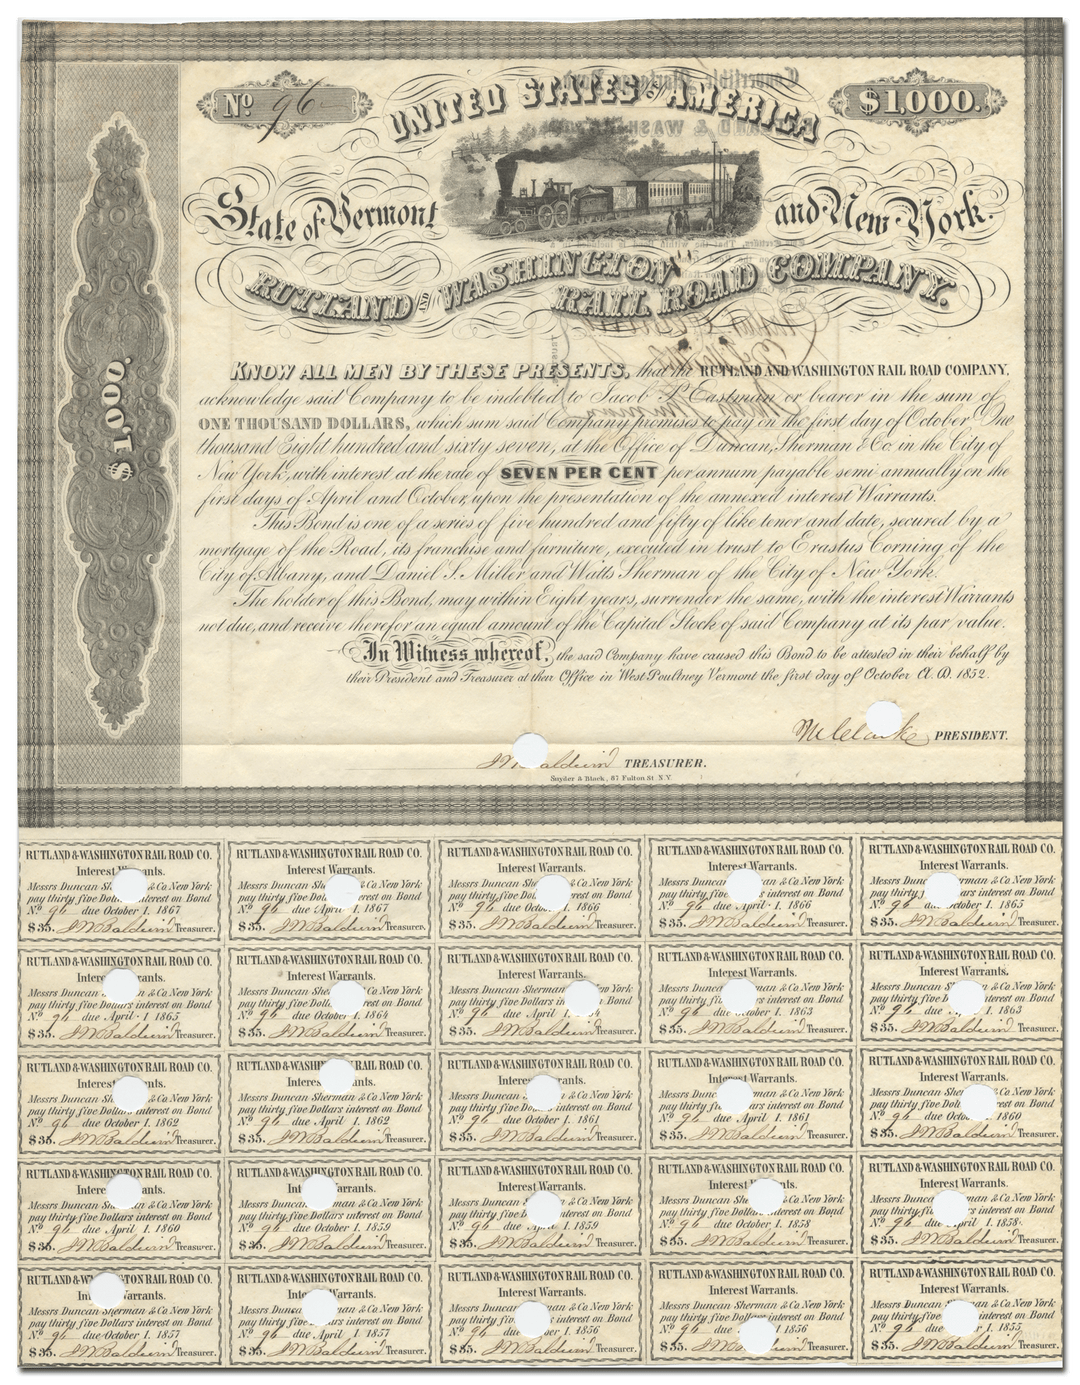 Nº 96
$1,000.
UNITED STATES OF AMERICA
State of Vermont and New York.
RUTLAND AND WASHINGTON RAIL ROAD COMPANY.
$1,000.
KNOW ALL MEN BY THESE PRESENTS, that the RUTLAND AND WASHINGTON RAIL ROAD COMPANY.
acknowledge said Company to be indebted to Jacob P. Eastman or bearer in the sum of
ONE THOUSAND DOLLARS, which sum said Company promises to pay on the first day of October One
thousand Eight hundred and sixty seven, at the Office of Duncan, Sherman & Co. in the City of
New York, with interest at the rate of SEVEN PER CENT per annum payable semi annually, on the
first days of April and October, upon the presentation of the annexed interest Warrants.
This Bond is one of a series of five hundred and fifty of like tenor and date, secured by a
mortgage of the Road, its franchise and furniture, executed in trust to Erastus Corning of the
City of Albany, and Daniel S. Miller and Watts Sherman of the City of New York.
The holder of this Bond, may within Eight years, surrender the same, with the interest Warrants
not due, and receive therefor an equal amount of the Capital Stock of said Company at its par value.
In Witness whereof, the said Company have caused this Bond to be attested in their behalf by
their President and Treasurer at their Office in West Poultney Vermont the first day of October A.D. 1852.
M Clarke PRESIDENT.
J W Baldwin TREASURER.
Snyder & Black, 87 Fulton St. N.Y.
RUTLAND & WASHINGTON RAIL ROAD CO. RUTLAND & WASHINGTON RAIL ROAD CO. RUTLAND & WASHINGTON RAIL ROAD CO. RUTLAND & WASHINGTON RAIL ROAD CO. RUTLAND & WASHINGTON RAIL ROAD CO.
Interest Warrants. Interest Warrants. Interest Warrants. Interest Warrants. Interest Warrants.
Messrs Duncan Sherman & Co. New York Messrs Duncan Sherman & Co. New York Messrs Duncan Sherman & Co. New York Messrs Duncan Sherman & Co. New York Messrs Duncan Sherman & Co. New York
pay thirty five Dollars interest on Bond pay thirty five Dollars interest on Bond pay thirty five Dollars interest on Bond pay thirty five Dollars interest on Bond pay thirty five Dollars interest on Bond
Nº 96 due October 1. 1867 Nº 96 due April 1. 1867 Nº 96 due October 1. 1866 Nº 96 due April 1. 1866 Nº 96 due October 1. 1865
$35. J W Baldwin Treasurer. $35. J W Baldwin Treasurer. $35. J W Baldwin Treasurer. $35. J W Baldwin Treasurer. $35. J W Baldwin Treasurer.
RUTLAND & WASHINGTON RAIL ROAD CO. RUTLAND & WASHINGTON RAIL ROAD CO. RUTLAND & WASHINGTON RAIL ROAD CO. RUTLAND & WASHINGTON RAIL ROAD CO. RUTLAND & WASHINGTON RAIL ROAD CO.
Interest Warrants. Interest Warrants. Interest Warrants. Interest Warrants. Interest Warrants.
Messrs Duncan Sherman & Co New York Messrs Duncan Sherman & Co New York Messrs Duncan Sherman & Co New York Messrs Duncan Sherman & Co New York Messrs Duncan Sherman & Co New York
pay thirty five Dollars interest on Bond pay thirty five Dollars interest on Bond pay thirty five Dollars interest on Bond pay thirty five Dollars interest on Bond pay thirty five Dollars interest on Bond
Nº 96 due April 1 1865 Nº 96 due October 1. 1864 Nº 96 due Nº 96 due October 1. 1863 Nº 96 due 1. 1863
$35. J W Baldwin Treasurer. $35. J W Baldwin Treasurer. $35. J W Baldwin Treasurer. $35. J W Baldwin Treasurer. $35. J W Baldwin Treasurer.
RUTLAND & WASHINGTON RAIL ROAD CO. RUTLAND & WASHINGTON RAIL ROAD CO. RUTLAND & WASHINGTON RAIL ROAD CO. RUTLAND & WASHINGTON RAIL ROAD CO. RUTLAND & WASHINGTON RAIL ROAD CO.
Interest Warrants. Interest Warrants. Interest Warrants. Interest Warrants. Interest Warrants.
Messrs Duncan Sherman & Co New York Messrs Duncan Sherman & Co New York Messrs Duncan Sherman & Co New York Messrs Duncan Sherman & Co New York Messrs Duncan Sherman & Co New York
pay thirty five Dollars interest on Bond pay thirty five Dollars interest on Bond pay thirty five Dollars interest on Bond pay thirty five Dollars interest on Bond pay thirty five Dollars interest on Bond
Nº 96 due October 1. 1862 Nº 96 due April 1. 1862 Nº 96 due October 1. 1861 Nº 96 due April 1. 1861 Nº 96 due October 1. 1860
$35. J W Baldwin Treasurer. $35. J W Baldwin Treasurer. $35. J W Baldwin Treasurer. $35. J W Baldwin Treasurer. $35. J W Baldwin Treasurer.
RUTLAND & WASHINGTON RAIL ROAD CO. RUTLAND & WASHINGTON RAIL ROAD CO. RUTLAND & WASHINGTON RAIL ROAD CO. RUTLAND & WASHINGTON RAIL ROAD CO. RUTLAND & WASHINGTON RAIL ROAD CO.
Interest Warrants. Interest Warrants. Interest Warrants. Interest Warrants. Interest Warrants.
Messrs Duncan Sherman & Co New York Messrs Duncan Sherman & Co New York Messrs Duncan Sherman & Co New York Messrs Duncan Sherman & Co New York Messrs Duncan Sherman & Co New York
pay thirty five Dollars interest on Bond pay thirty five Dollars interest on Bond pay thirty five Dollars interest on Bond pay thirty five Dollars interest on Bond pay thirty five Dollars interest on Bond
Nº 96 due April 1. 1860 Nº 96 due October 1. 1859 Nº 96 due April 1. 1859 Nº 96 due October 1. 1858 Nº 96 due April 1. 1858
$35. J W Baldwin Treasurer. $35. J W Baldwin Treasurer. $35. J W Baldwin Treasurer. $35. J W Baldwin Treasurer. $35. J W Baldwin Treasurer.
RUTLAND & WASHINGTON RAIL ROAD CO. RUTLAND & WASHINGTON RAIL ROAD CO. RUTLAND & WASHINGTON RAIL ROAD CO. RUTLAND & WASHINGTON RAIL ROAD CO. RUTLAND & WASHINGTON RAIL ROAD CO.
Interest Warrants. Interest Warrants. Interest Warrants. Interest Warrants. Interest Warrants.
Messrs Duncan Sherman & Co New York Messrs Duncan Sherman & Co New York Messrs Duncan Sherman & Co New York Messrs Duncan Sherman & Co New York Messrs Duncan Sherman & Co New York
pay thirty five Dollars interest on Bond pay thirty five Dollars interest on Bond pay thirty five Dollars interest on Bond pay thirty five Dollars interest on Bond pay thirty five Dollars interest on Bond
Nº 96 due October 1. 1857 Nº 96 due April 1. 1857 Nº 96 due October 1. 1856 Nº 96 due 1 1856 Nº 96 due 1. 1855
$35. J W Baldwin Treasurer. $35. J W Baldwin Treasurer. $35. J W Baldwin Treasurer. $35. J W Baldwin Treasurer. $35. J W Baldwin Treasurer.